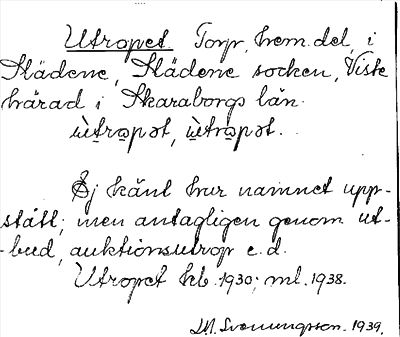 Utropet Torp, hem.del, i
Slädene, Slädene socken, Viste
härad i Skaraborgs län.
ùtropət, ùtròpət.
Ej känt hur namnet upp-
stått; men antagligen genom ut-
-bud, auktionsutrop e.d.
Utropet kb. 1930; ml. 1938.
1939.